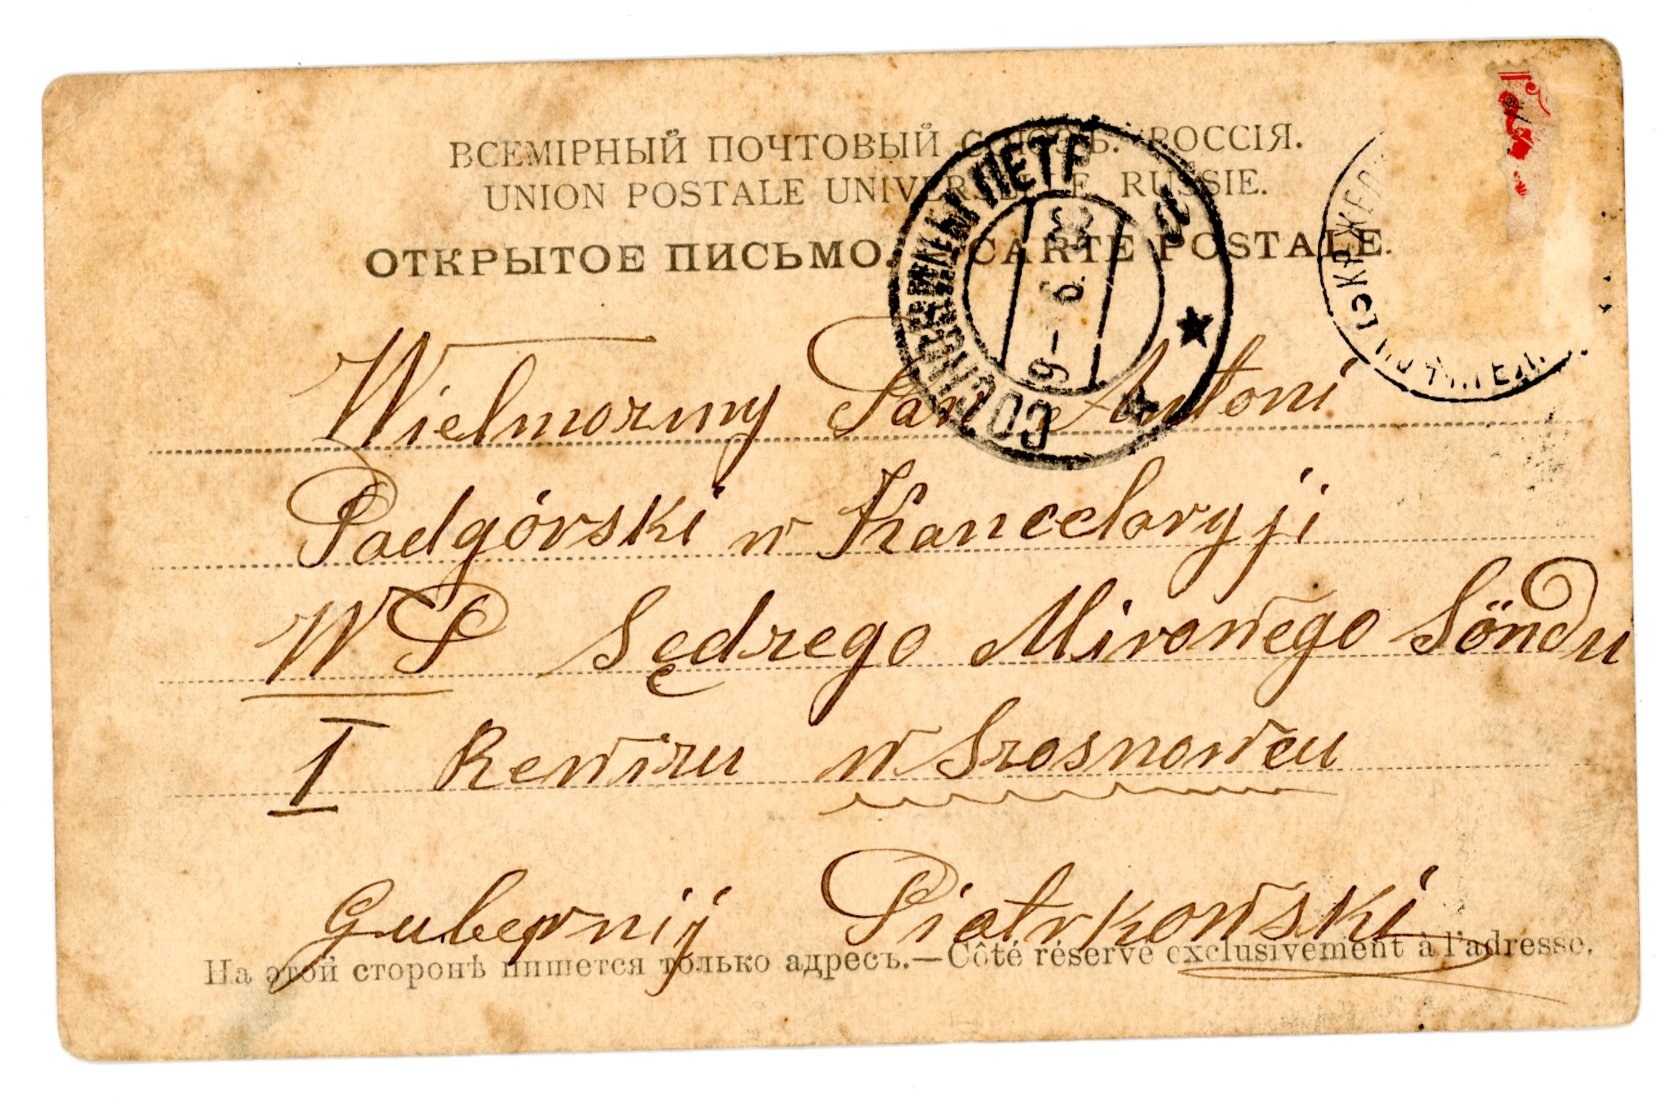 ВСЕМІРНЫЙ ПОЧТОВЫЙ СОЮЗЪ. РОССІЯ.
UNION POSTALE UNIVERSELLE. RUSSIE.
ОТКРЫТОЕ ПИСЬМО. CARTE POSTALE.
СОСНОВИЦЫ ПЕТР
9- 6
Wielmorzny Pan Antoni
Podgórski w Kancelaryji
WP Sędzego Mirowego Sondu
I Rewiru w Szosnowcu
Gubernij Piotrkowski
На этой сторонѣ пишется только адресъ.—Côté réservé exclusivement à l'adresse.